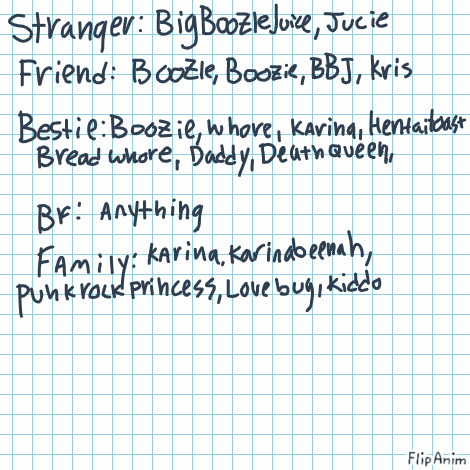 Stranger: BigBoozleJuice, Jucie
Friend: Boozle, Boozie, BBJ, Kris
Bestie: Boozie, whore, Karina, Hentaitoast
Bread whore, Daddy, DeathQueen,
BF: Anything
Family: Karina, Karinabeenah,
Punk rock princess, Love bug, Kiddo
FlipAnim